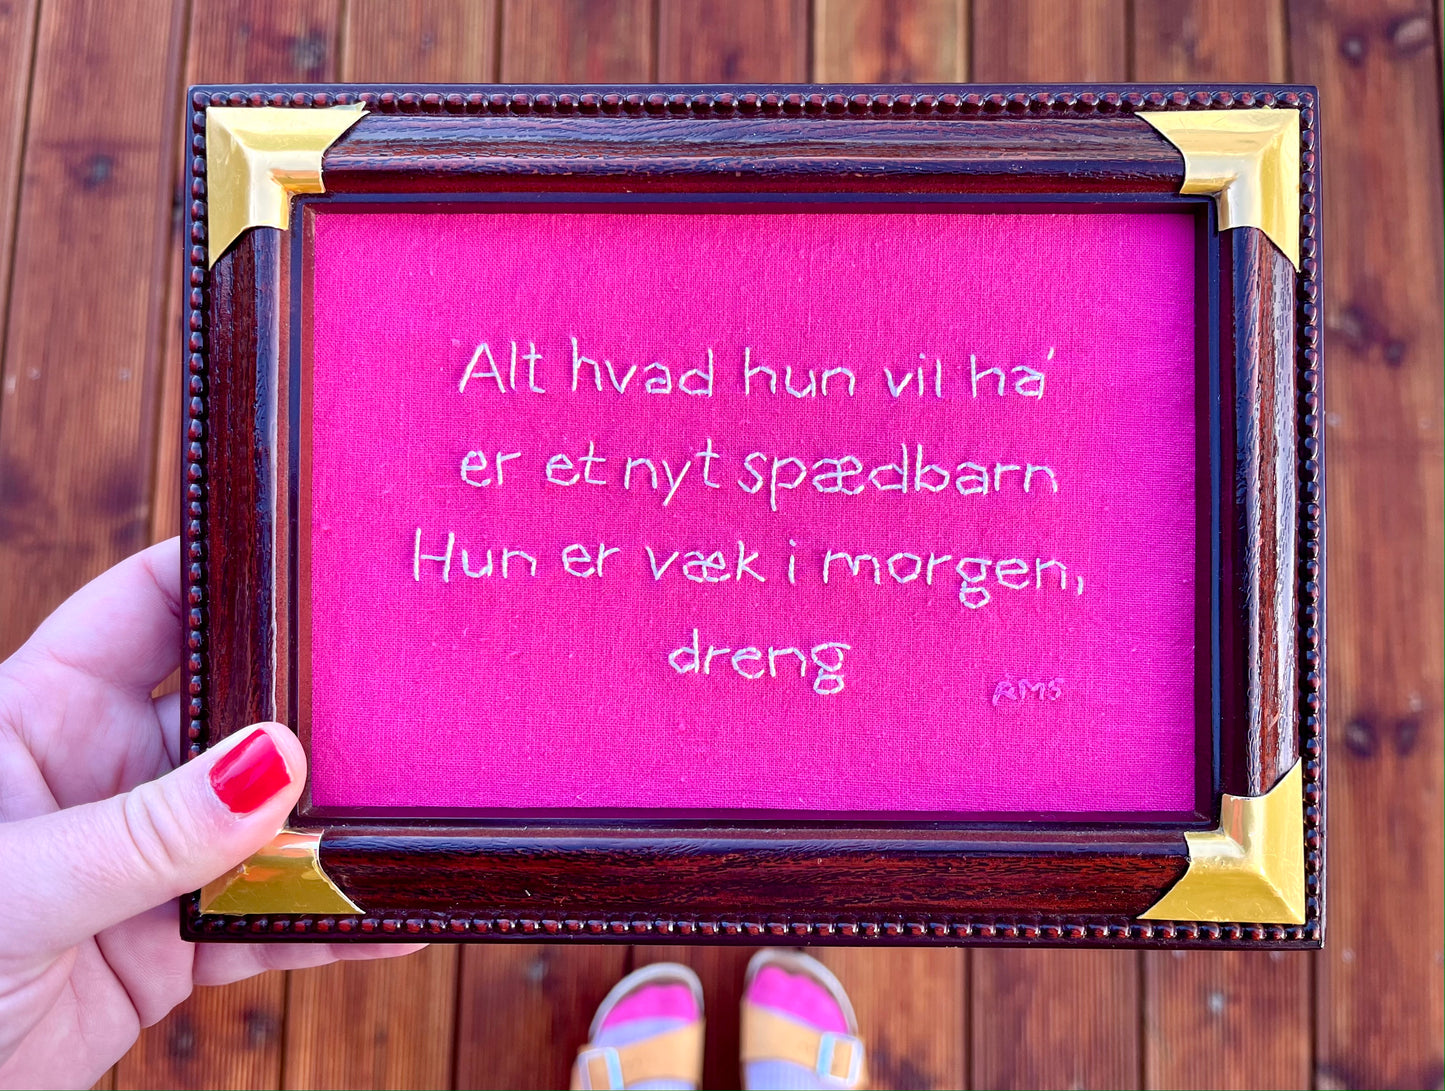 Alt hvad hun vil ha'
er et nyt spædbarn
Hun er væk i morgen,
dreng
RMS